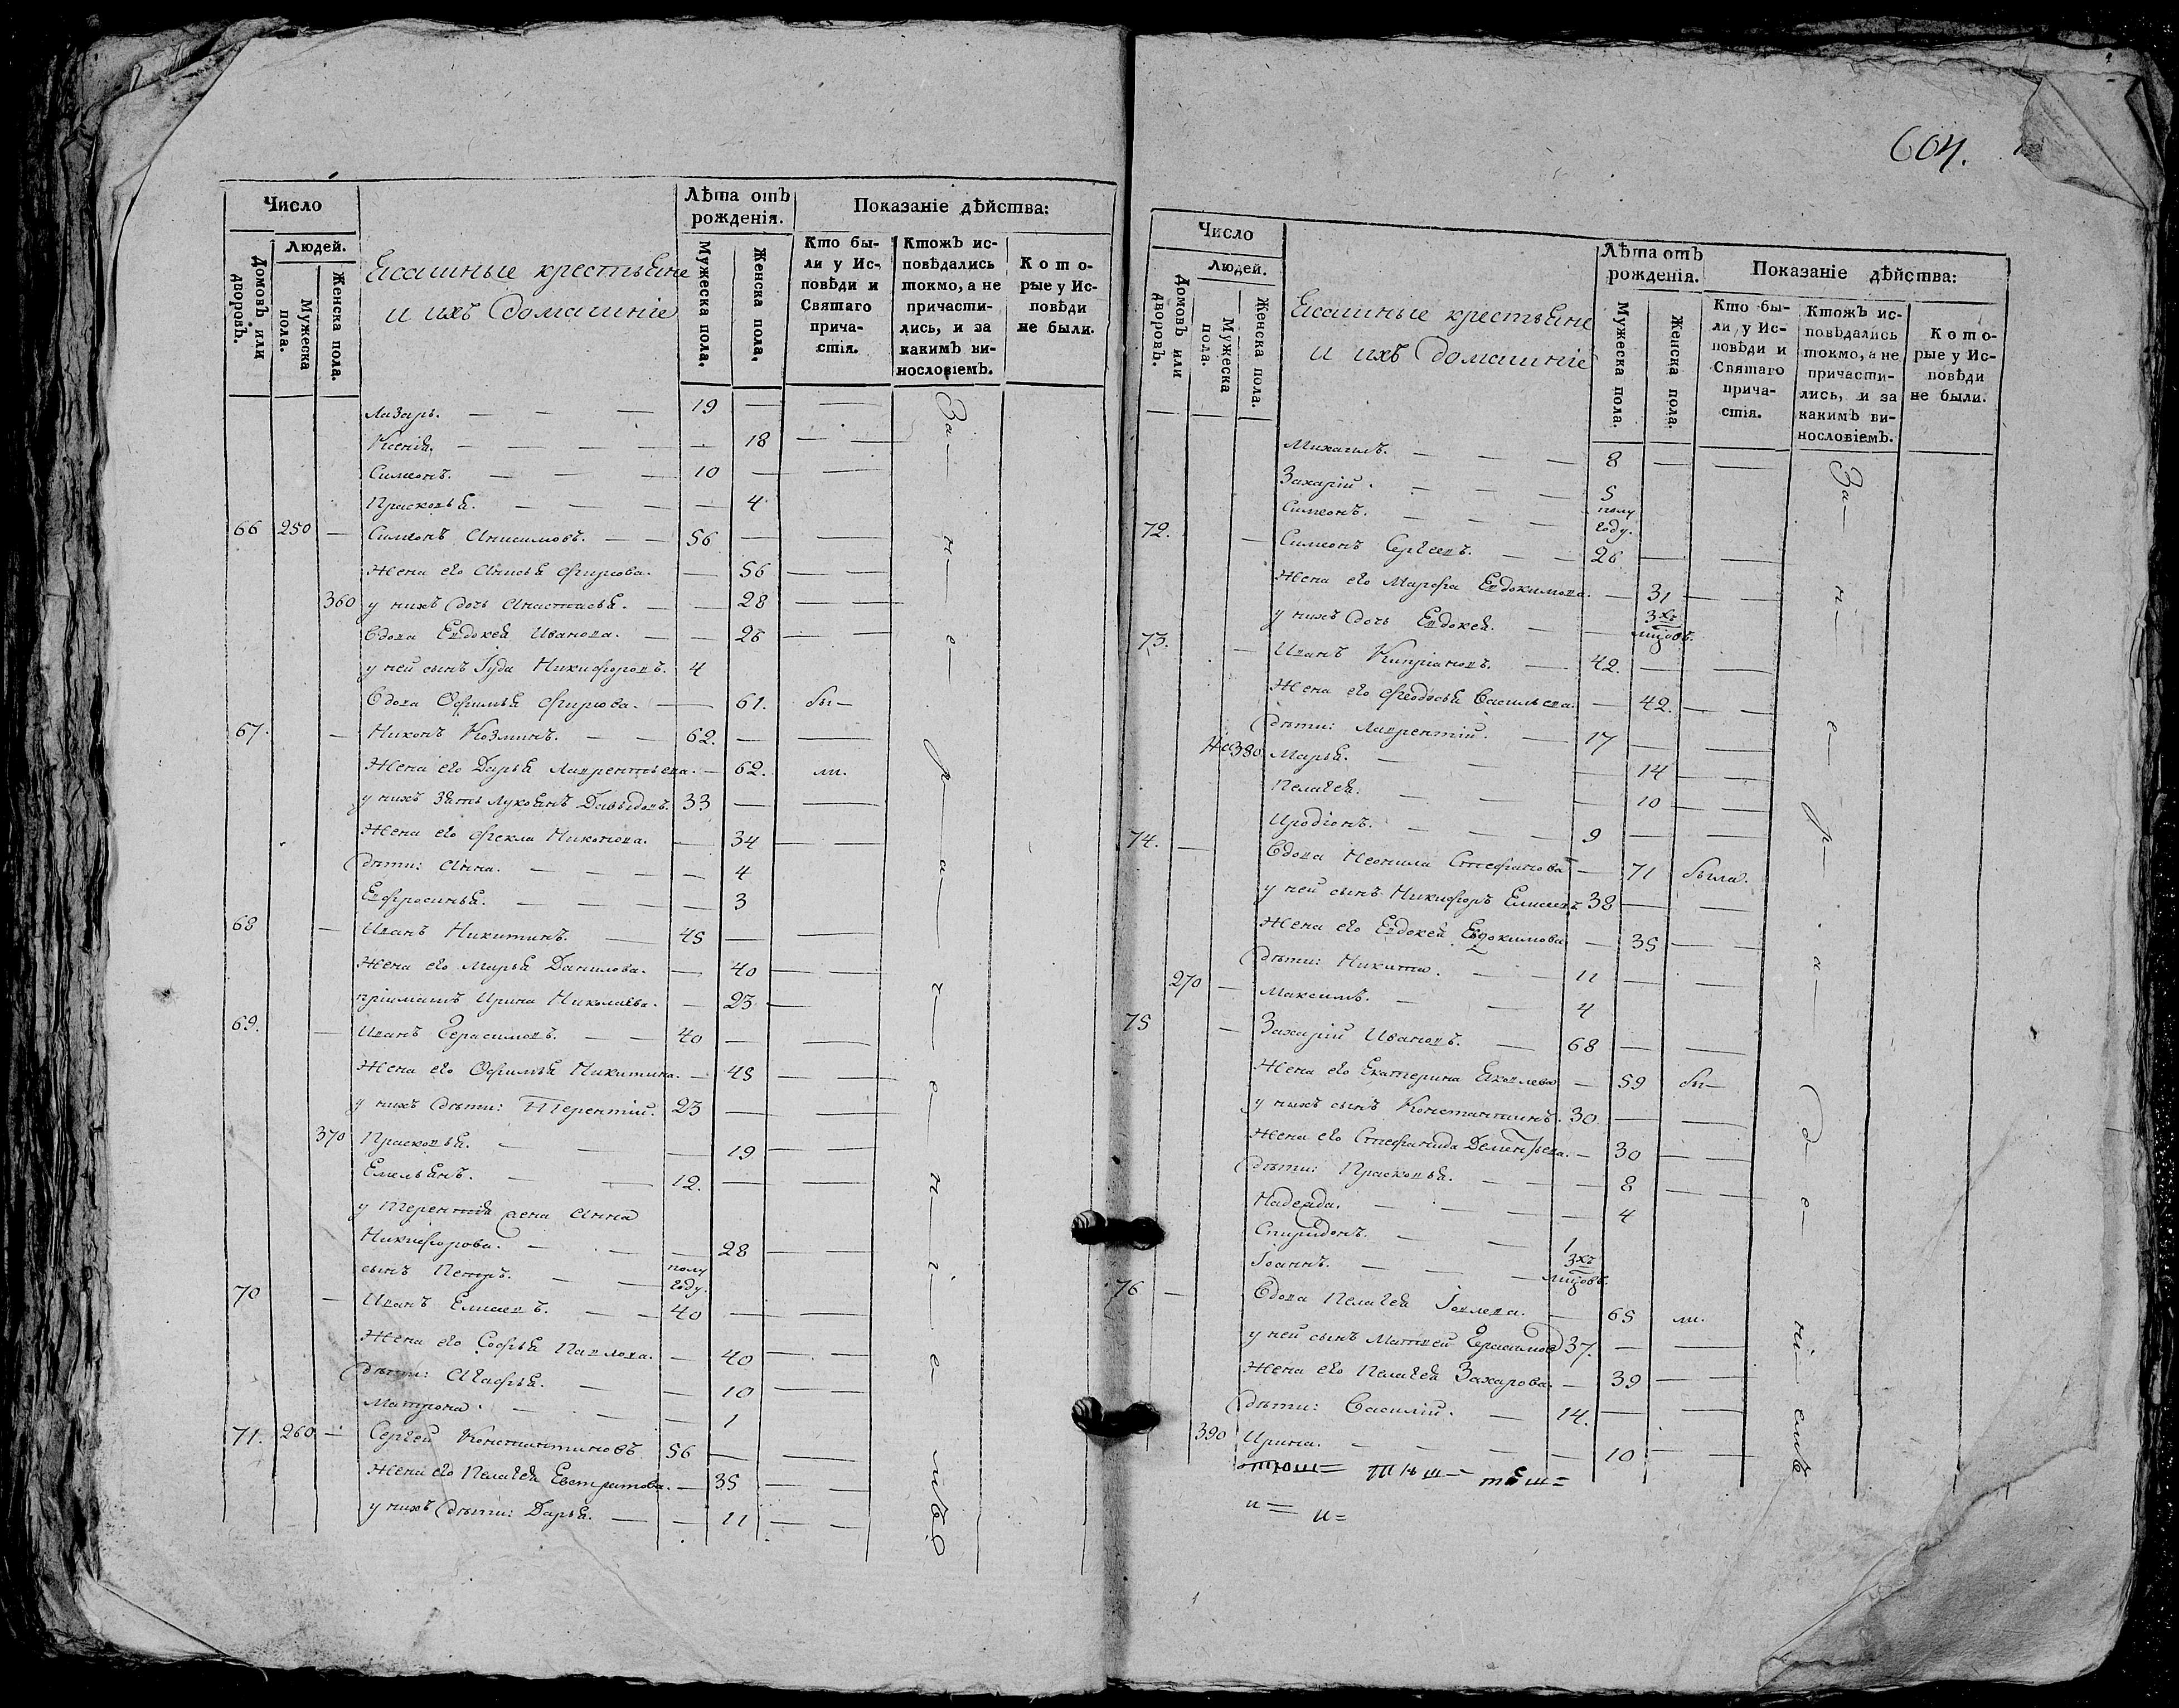 Число
Людей.
Домовъ или дворовъ.
Мужеска пола.
Женска пола.
Ясашные крестьяне
и ихъ домашніе
Лѣта отъ рожденія.
Мужеска пола.
Женска пола.
Показаніе дѣйства:
Кто были у Исповѣди и Святаго причастія.
Ктожъ исповѣдались токмо, а не причастились, и за какимъ винословіемъ.
Которые у Исповѣди не были.
Лазарь. — — — 19 — —
Ксенія. — — — — 18 — —
Симеонъ. — — — 10 — —
Прасковья. — — — — 4
66 250 — Симеонъ Анисимовъ. — — 56 — —
Жена его Анисья Фирсова. — 56 — —
360 у нихъ дочь Анастасья. — — 28 — —
вдова Евдокея Иванова. — — 26 — —
у ней сынъ Іуда Никифоровъ. 4
вдова Офимья Фирсова. — 61. бы—
67. — Никонъ Козминъ. — — 62. — —
Жена его Дарья Лаврентьева. — 62. ли.
у нихъ зять Лукоянъ Давыдовъ. 33 — —
Жена его Фекла Никонова. — 34 — —
дѣти: Анна. — — — — 4
Ефросинья. — — — — 3
68 — Иванъ Никитинъ. — 45 — —
Жена его Марья Данилова. — 40 — —
пріимашъ Ирина Николаева. — 23 —
69. — Иванъ Герасимовъ. — — 40 — —
Жена его Офимья Никитина. — 45 — —
у нихъ дѣти: Терентій. 23 — —
370 Прасковья. — — — 19 — —
Емельянъ. — — 12. — —
у Терентія жена Анна
Никифорова. — — — 28 — —
сынъ Петръ. — — полу году.
70 — Иванъ Елисеевъ. — — 40 — —
Жена его Софья Павлова. — 40 — —
дѣти: Агафья. — — 10 —
Матрона. — — — 1
71. 260 — Сергей Константиновъ 56 — —
Жена его Пелагея Евстратова. — 35 — —
у нихъ дѣти: Дарья. — — 11 — —
За— н— е— р— а— ч— е— н— і— е— мъ
604.
Число
Людей.
Домовъ или дворовъ.
Мужеска пола.
Женска пола.
Ясашные крестьяне
и ихъ домашніе
Лѣта отъ рожденія.
Мужеска пола.
Женска пола.
Показаніе дѣйства:
Кто были у Исповѣди и Святаго причастія.
Ктожъ исповѣдались токмо, а не причастились, и за какимъ винословіемъ.
Которые у Исповѣди не были.
Михаилъ. — — — 8 — —
Захарій. — — — 5
Симеонъ. — — — полу году.
72. — Симеонъ Сергеевъ. — — 26 — —
Жена его Марфа Евдокимова. — 31 — —
у нихъ дочь Евдокея. — — 3хъ мцовъ.
73. — Иванъ Кипріановъ. — 42. — —
Жена его Феодосья Васильева. — 42. — —
дѣти: Лаврентій. — 17 — —
380 Марья. — — — 14 — —
Пелагея. — — — 10 — —
Иродіонъ. — — — 9 — —
74. — вдова Неонила Стефанова — 71 была.
у ней сынъ Никифоръ Елисеевъ 38 — —
Жена его Евдокея Евдокимова — 35 — —
дѣти: Никита. — — 11 — —
270 — Максимъ. — — 4
75 — Захарій Ивановъ. — 68 — —
Жена его Екатерина Яковлева — 59 бы—
у нихъ сынъ Константинъ. 30 — —
Жена его Стефанида Дементьева. — 30 — —
дѣти: Прасковья. — — — 8 — —
Надежда. — — — — 4
Спиридонъ. — — 1
Іоаннъ. — — — 3хъ мцовъ.
76 — вдова Пелагея Іовлева. — 65 ли.
у ней сынъ Матвей Герасимов 37. — —
Жена его Пелагея Захарова. — 39 — —
дѣти: Василій. — 14. — —
390 Ирина. — — — — 10 — —